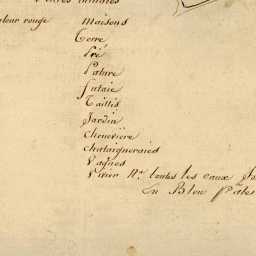 uleur rouge maisons
Terre
Pré
Pature
futaie
Taillis
Jardin
Chenevière
chataigneraies
Vagues
Vivier N.ª toutes les eaux So
En Bleu